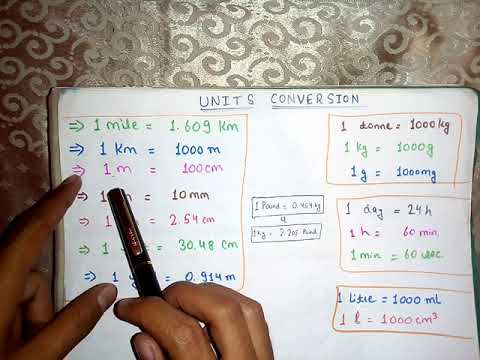 UNITS CONVERSION
⇒ 1 mile = 1.609 Km
⇒ 1 Km = 1000 m
⇒ 1 m = 100 cm
⇒ 1 = 10 mm
⇒ 1 = 2.54 cm
⇒ 1 = 30.48 cm
⇒ 1 = 0.914 m
1 Pound = 0.454 kg
1 kg = 2.205 Pound
1 tonne = 1000 kg
1 kg = 1000g
1 g = 1000mg
1 day = 24 h
1 h = 60 min.
1 min = 60 sec
1 litre = 1000 ml
1 l = 1000 cm³